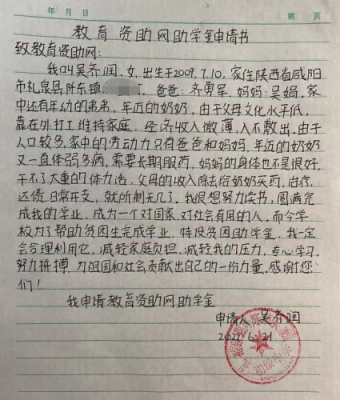 年 月 日 第 页
教育资助网助学金申请书
致教育资助网：
我叫吴齐润，女，出生于2009.7.10，家住陕西省咸阳
市礼泉县阡东镇 。爸爸：齐勇军，妈妈：吴娟，家
中还有年幼的弟弟，年近的奶奶，由于父母文化水平低，
靠在外打工维持家庭，经济收入微薄，入不敷出，由于
人口较多，家中的劳动力只有爸爸和妈妈，年近的奶奶
又一直体弱多病，需要长期服药，妈妈的身体也不是很好，
干不了太重的体力活，父母的收入除去给奶奶买药，治疗，
还债，日常开支，就所剩无几了，我很想努力读书，圆满完
成我的学业，成为一个对国家，对社会有用的人，而今学
校为了帮助贫困生完成学业，特设贫困助学金，我一定
会合理利用它，减轻家庭负担，减轻我的压力，专心学习，
努力拼搏，为祖国和社会贡献出自己的一份力量，感谢您
们！
我申请教育资助网助学金
申请人：吴齐润
2021.6.21